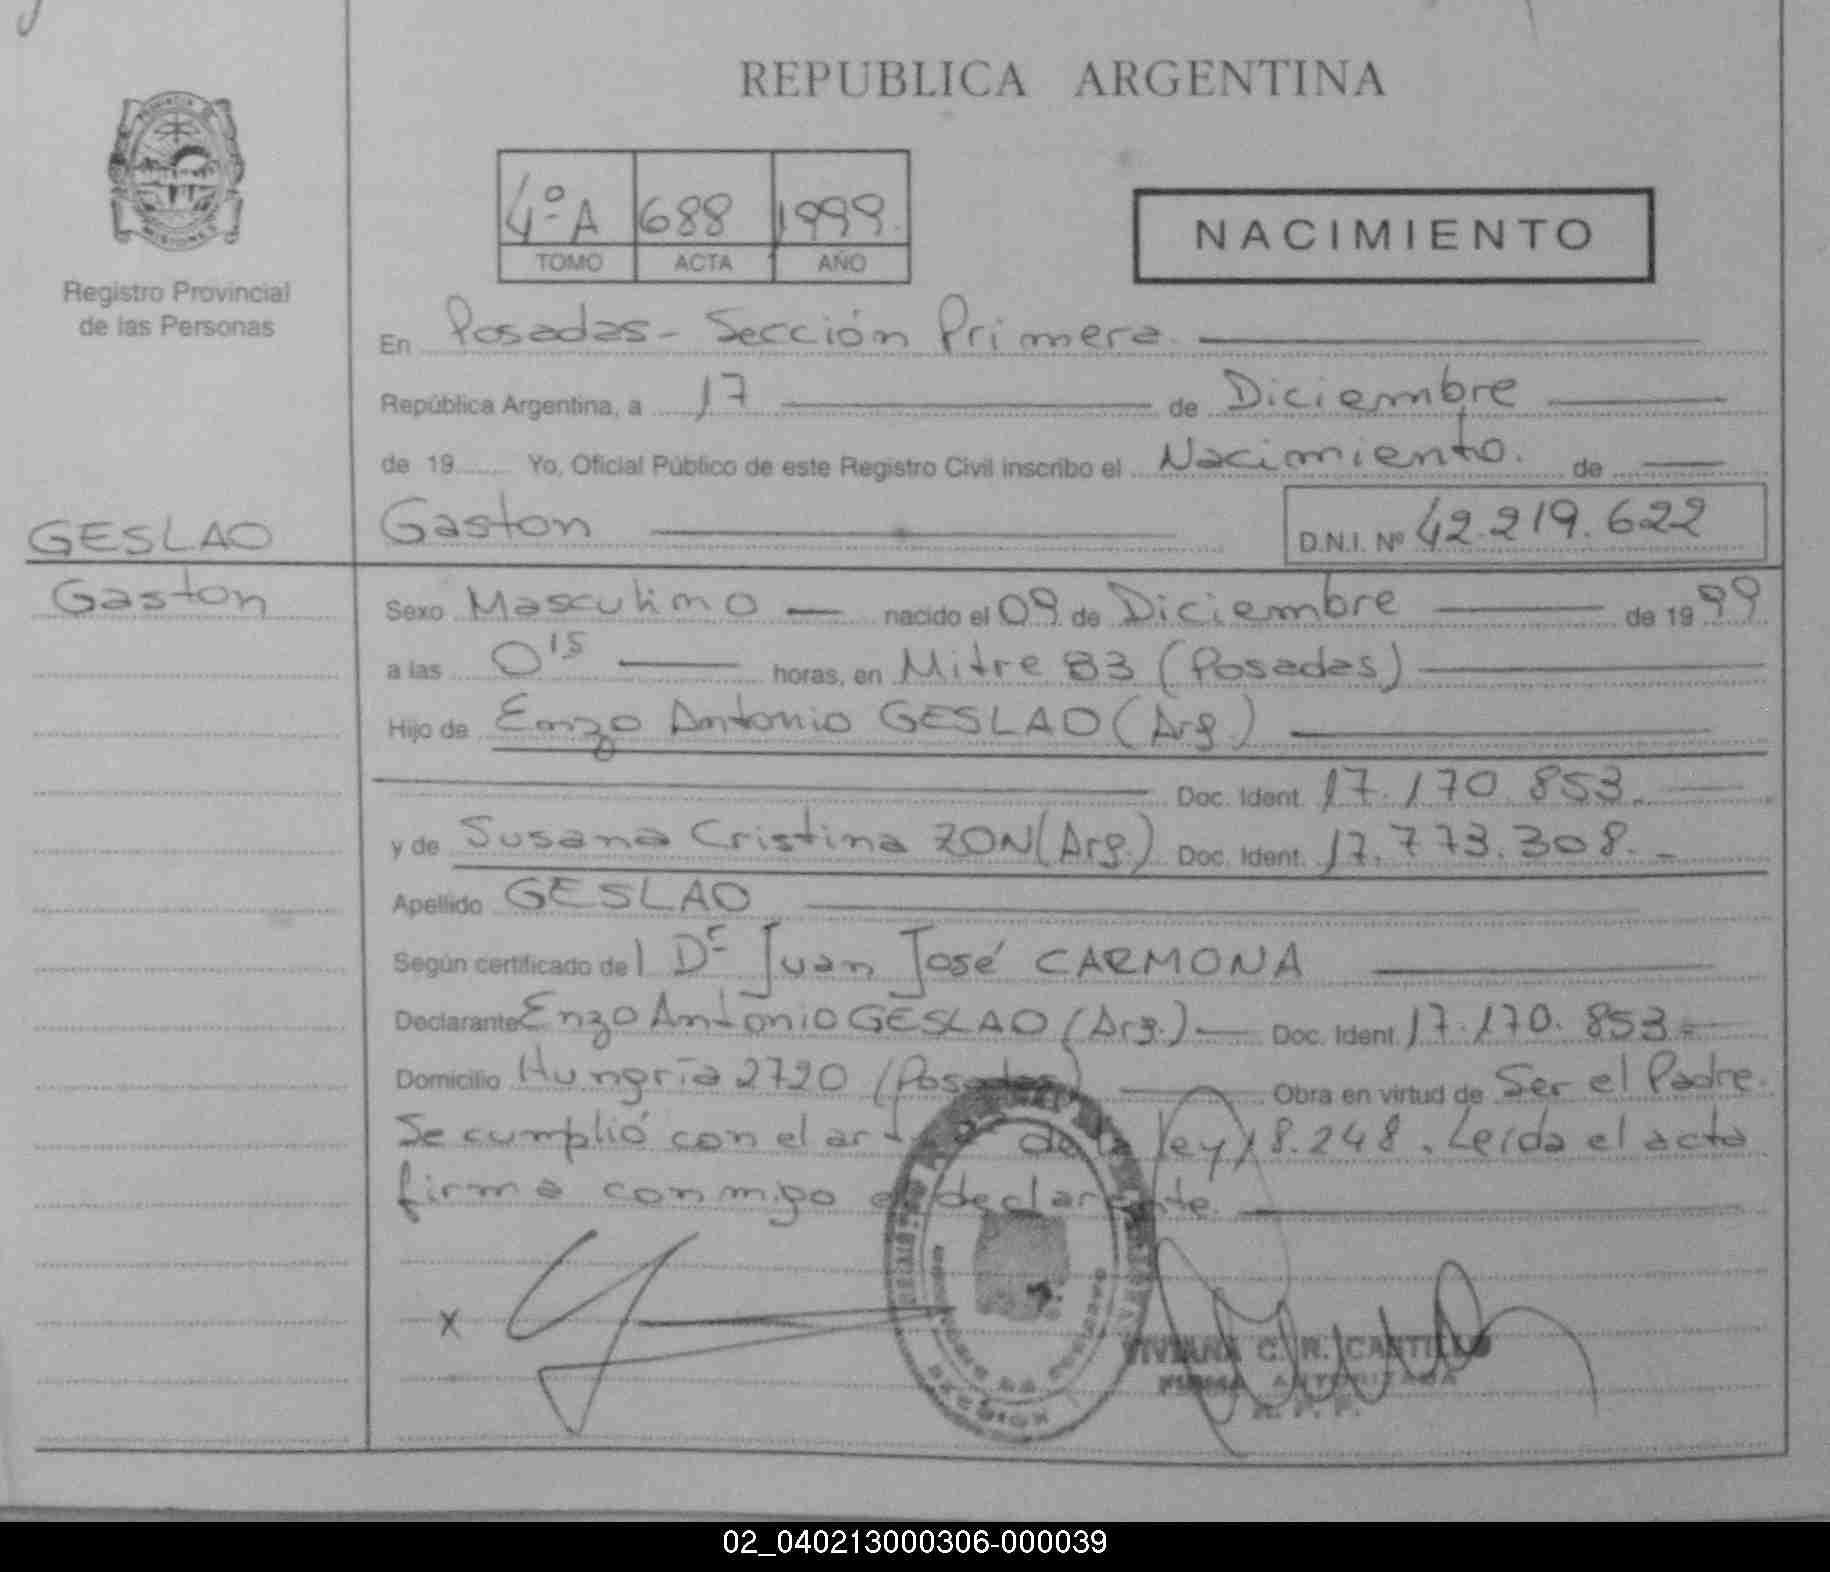 REPUBLICA ARGENTINA
PROVINCIA DE
MISIONES
Registro Provincial
de las Personas
4º A 688 1999.
TOMO ACTA AÑO
NACIMIENTO
En Posadas - Sección Primera.
República Argentina, a 17 de Diciembre
de 19 Yo, Oficial Público de este Registro Civil inscribo el Nacimiento. de
GESLAO
Gaston
Gaston D.N.I. Nº 42.219.622
Sexo Masculino nacido el 09 de Diciembre de 1999
a las 0 15 horas, en Mitre 83 (Posadas)
Hijo de Enzo Antonio GESLAO (Arg.)
Doc. Ident. 17.170.853.
y de Susana Cristina ZON (Arg.) Doc. Ident. 17.773.308.
Apellido GESLAO
Según certificado del Dr Juan José CARMONA
Declarante Enzo Antonio GESLAO (Arg.) Doc. Ident. 17.170.853
Domicilio Hungría 2720 (Posadas) Obra en virtud de Ser el Padre.
Se cumplió con el art. de la ley 18.248. Leída el acta
firma conmigo el declarante.
X
VIVIANA C. R. CASTILLO
FIRMA AUTORIZADA
R. P. P.
SECCION
02_040213000306-000039